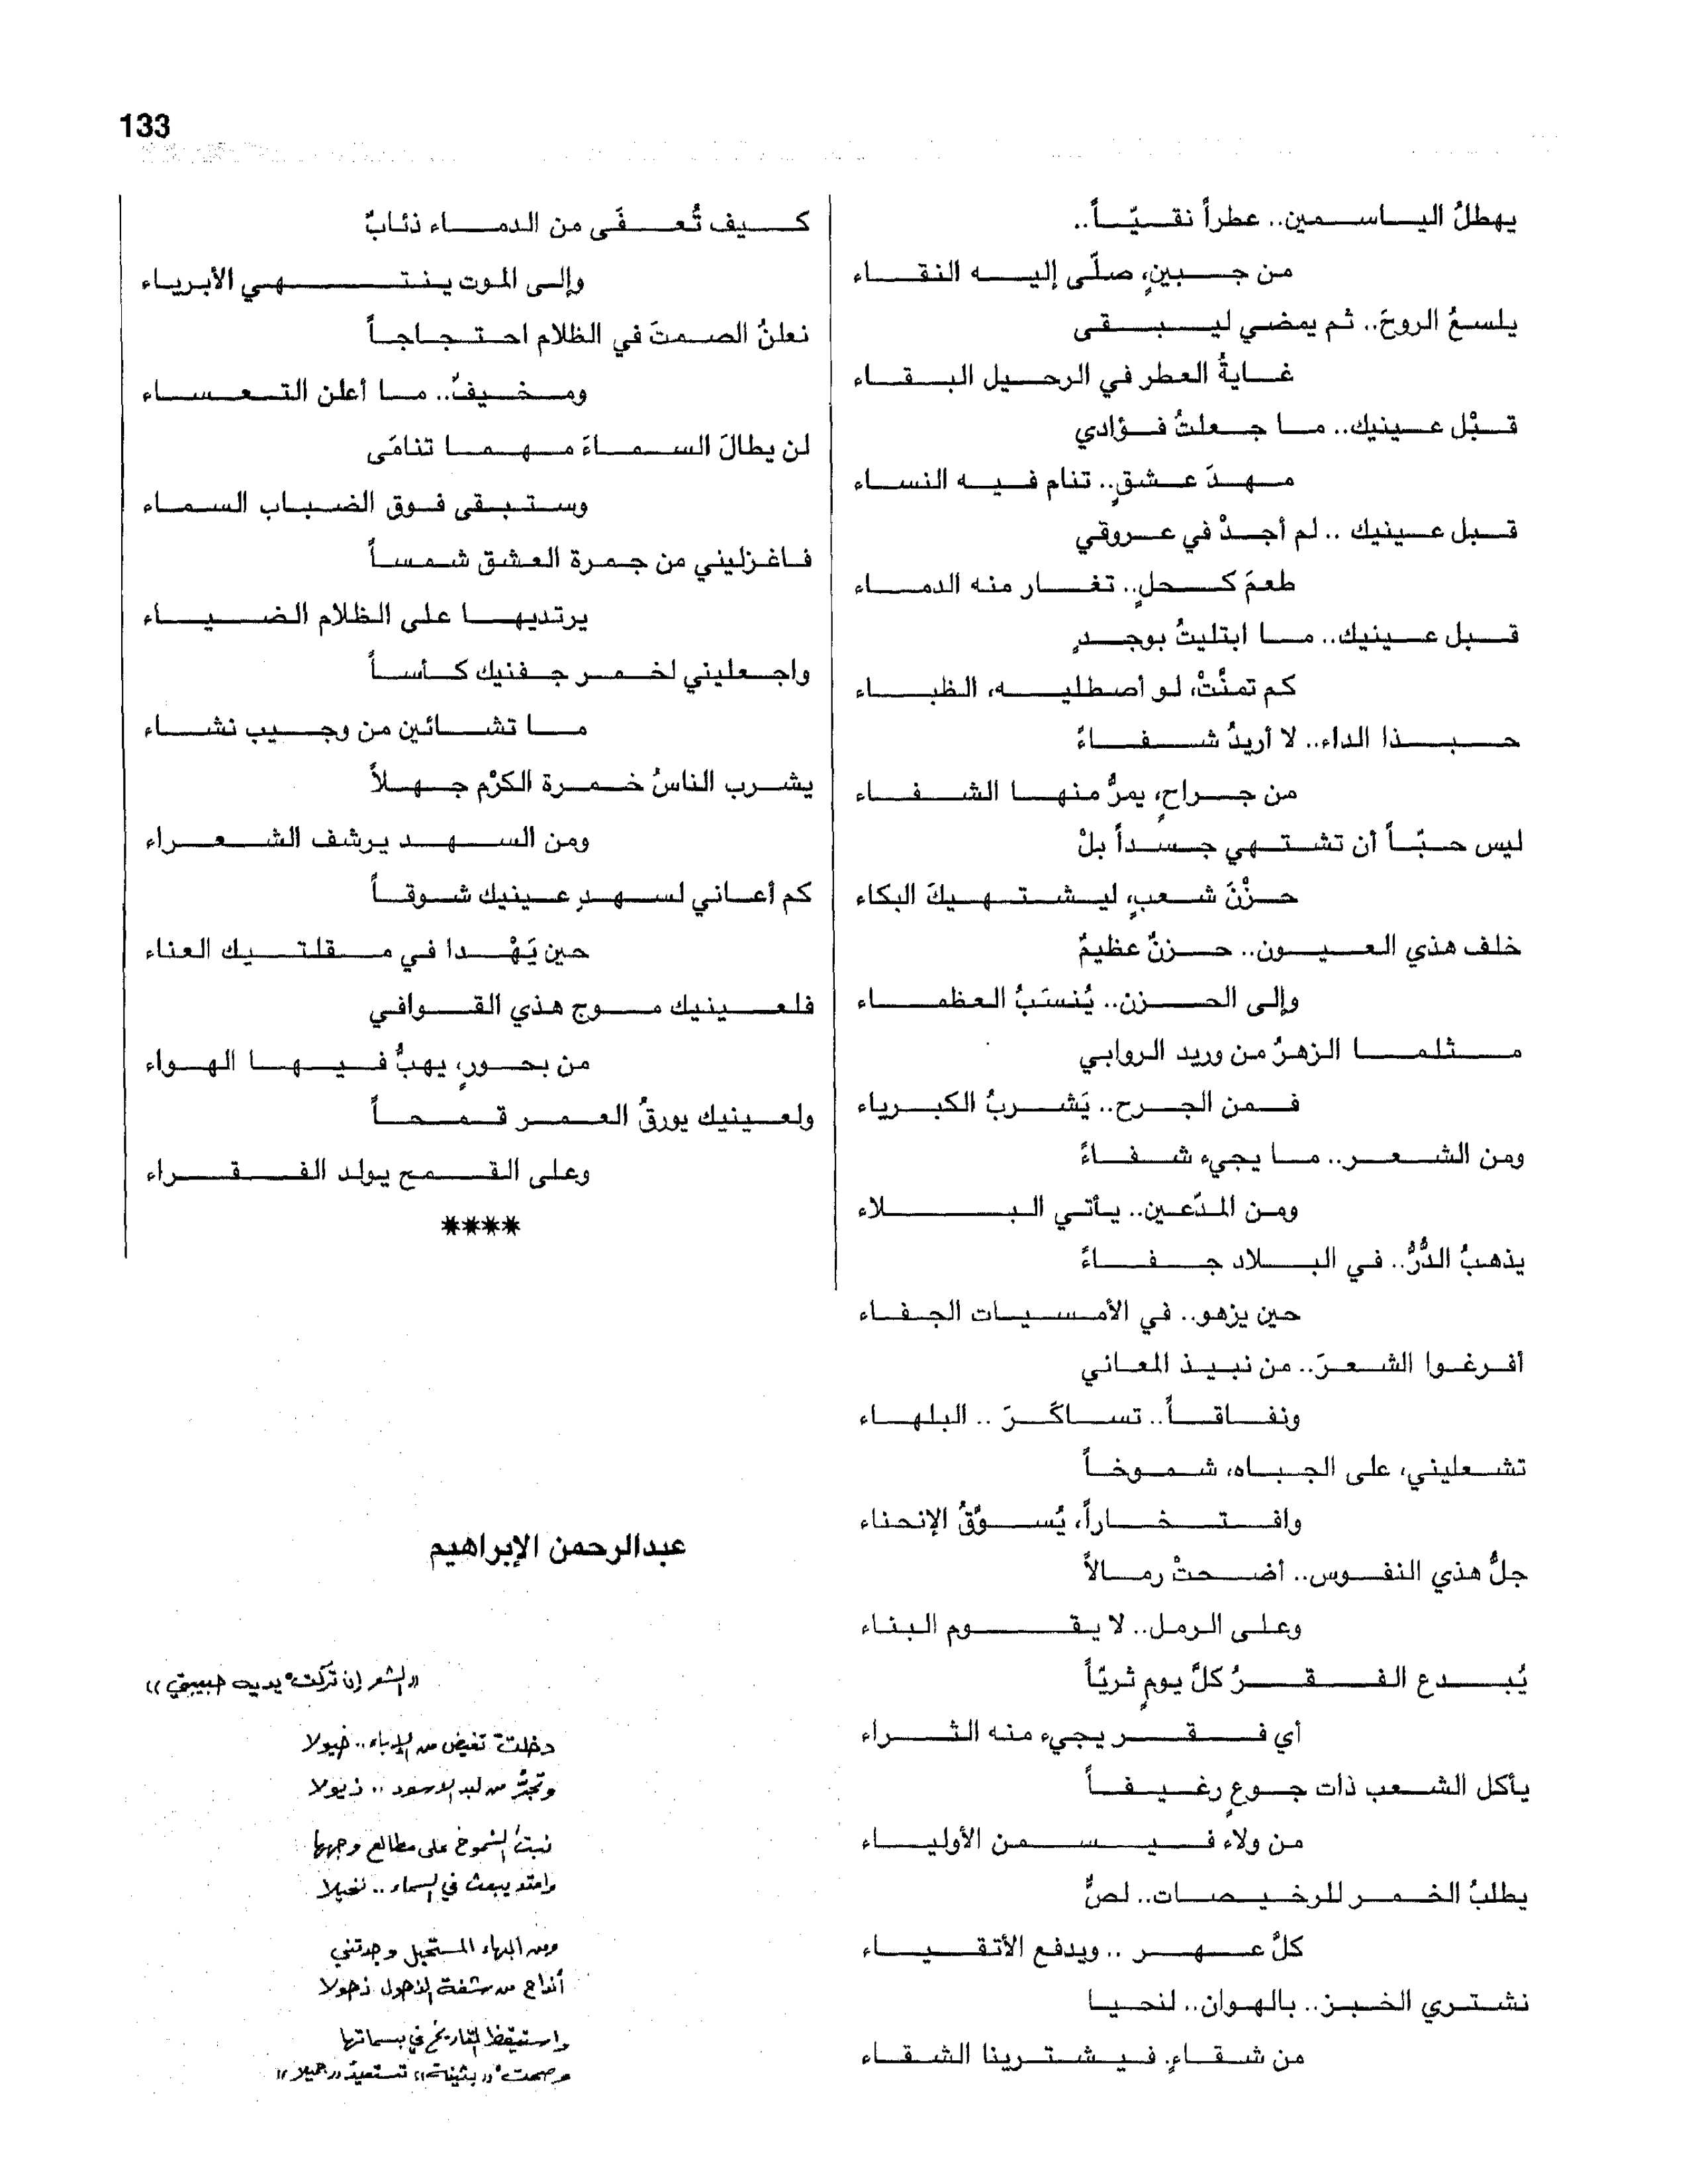 133
يهطلُ الياسمين.. عطراً نقيّاً..
من جبينٍ، صلّى إليه النقاء
يلسعُ الروحَ.. ثم يمضي ليبقى
غايةُ العطر في الرحيل البقاء
قبْل عينيك.. ما جعلتُ فؤادي
مهدَ عشقٍ.. تنام فيه النساء
قبل عينيك .. لم أجدْ في عروقي
طعمَ كحلٍ.. تغار منه الدماء
قبل عينيك.. ما ابتليتُ بوجدٍ
كم تمنَّتْ، لو أصطليه، الظباء
حبذا الداء.. لا أريدُ شفاءً
من جراحٍ، يمرُّ منها الشفاء
ليس حبّاً أن تشتهي جسداً بلْ
حزْنَ شعبٍ، ليشتهيكَ البكاء
خلف هذي العيون.. حزنٌ عظيمٌ
وإلى الحزن.. يُنسَبُ العظماء
مثلما الزهرُ من وريد الروابي
فمن الجرح.. يَشربُ الكبرياء
ومن الشعر.. ما يجيء شفاءً
ومن المدّعين.. يأتي البلاء
يذهبُ الدُّرُّ.. في البلاد جفاءً
حين يزهو.. في الأمسيات الجفاء
أفرغوا الشعرَ.. من نبيذ المعاني
ونفاقاً.. تساكَرَ .. البلهاء
تشعليني، على الجباه، شموخاً
وافتخاراً، يُسوَّقُ الإنحناء
جلُّ هذي النفوس.. أضحتْ رمالاً
وعلى الرمل.. لا يقوم البناء
يُبدع الفقرُ كلَّ يومٍ ثريّاً
أي فقر يجيء منه الثراء
يأكل الشعب ذات جوعٍ رغيفاً
من ولاء فيسمن الأولياء
يطلبُ الخمر للرخيصات.. لصٌّ
كلَّ عهر .. ويدفع الأتقياء
نشتري الخبز.. بالهوان.. لنحيا
من شقاءٍ. فيشترينا الشقاء
كيف تُعفَى من الدماء ذئابٌ
وإلى الموت ينتهي الأبرياء
نعلنُ الصمتَ في الظلام احتجاجاً
ومخيفٌ.. ما أعلن التعساء
لن يطالَ السماءَ مهما تنامَى
وستبقى فوق الضباب السماء
فاغزليني من جمرة العشق شمساً
يرتديها على الظلام الضياء
واجعليني لخمر جفنيك كأساً
ما تشائين من وجيب نشاء
يشرب الناسُ خمرة الكرْم جهلاً
ومن السهد يرشف الشعراء
كم أعاني لسهدِ عينيك شوقاً
حين يَهْدا في مقلتيك العناء
فلعينيك موج هذي القوافي
من بحورٍ، يهبُّ فيها الهواء
ولعينيك يورقُ العمر قمحاً
وعلى القمح يولد الفقراء
****
عبدالرحمن الإبراهيم
«الشعر إن تركتْ يديه حبيبتي»
دخلت تفيض من الإباء.. خيولا
وتجرُّ من لبد الأسود.. ذيولا
نبتَ الشموخ على مطالع وجهها
وامتد يبعث في السماء.. نخيلا
ومن البهاء المستحيل وجدتني
أنداح من شفة الذهول ذهولا
واستيقظ التاريخ في بسماتها
وصحت «بثينة» تستعيد «جميلا»